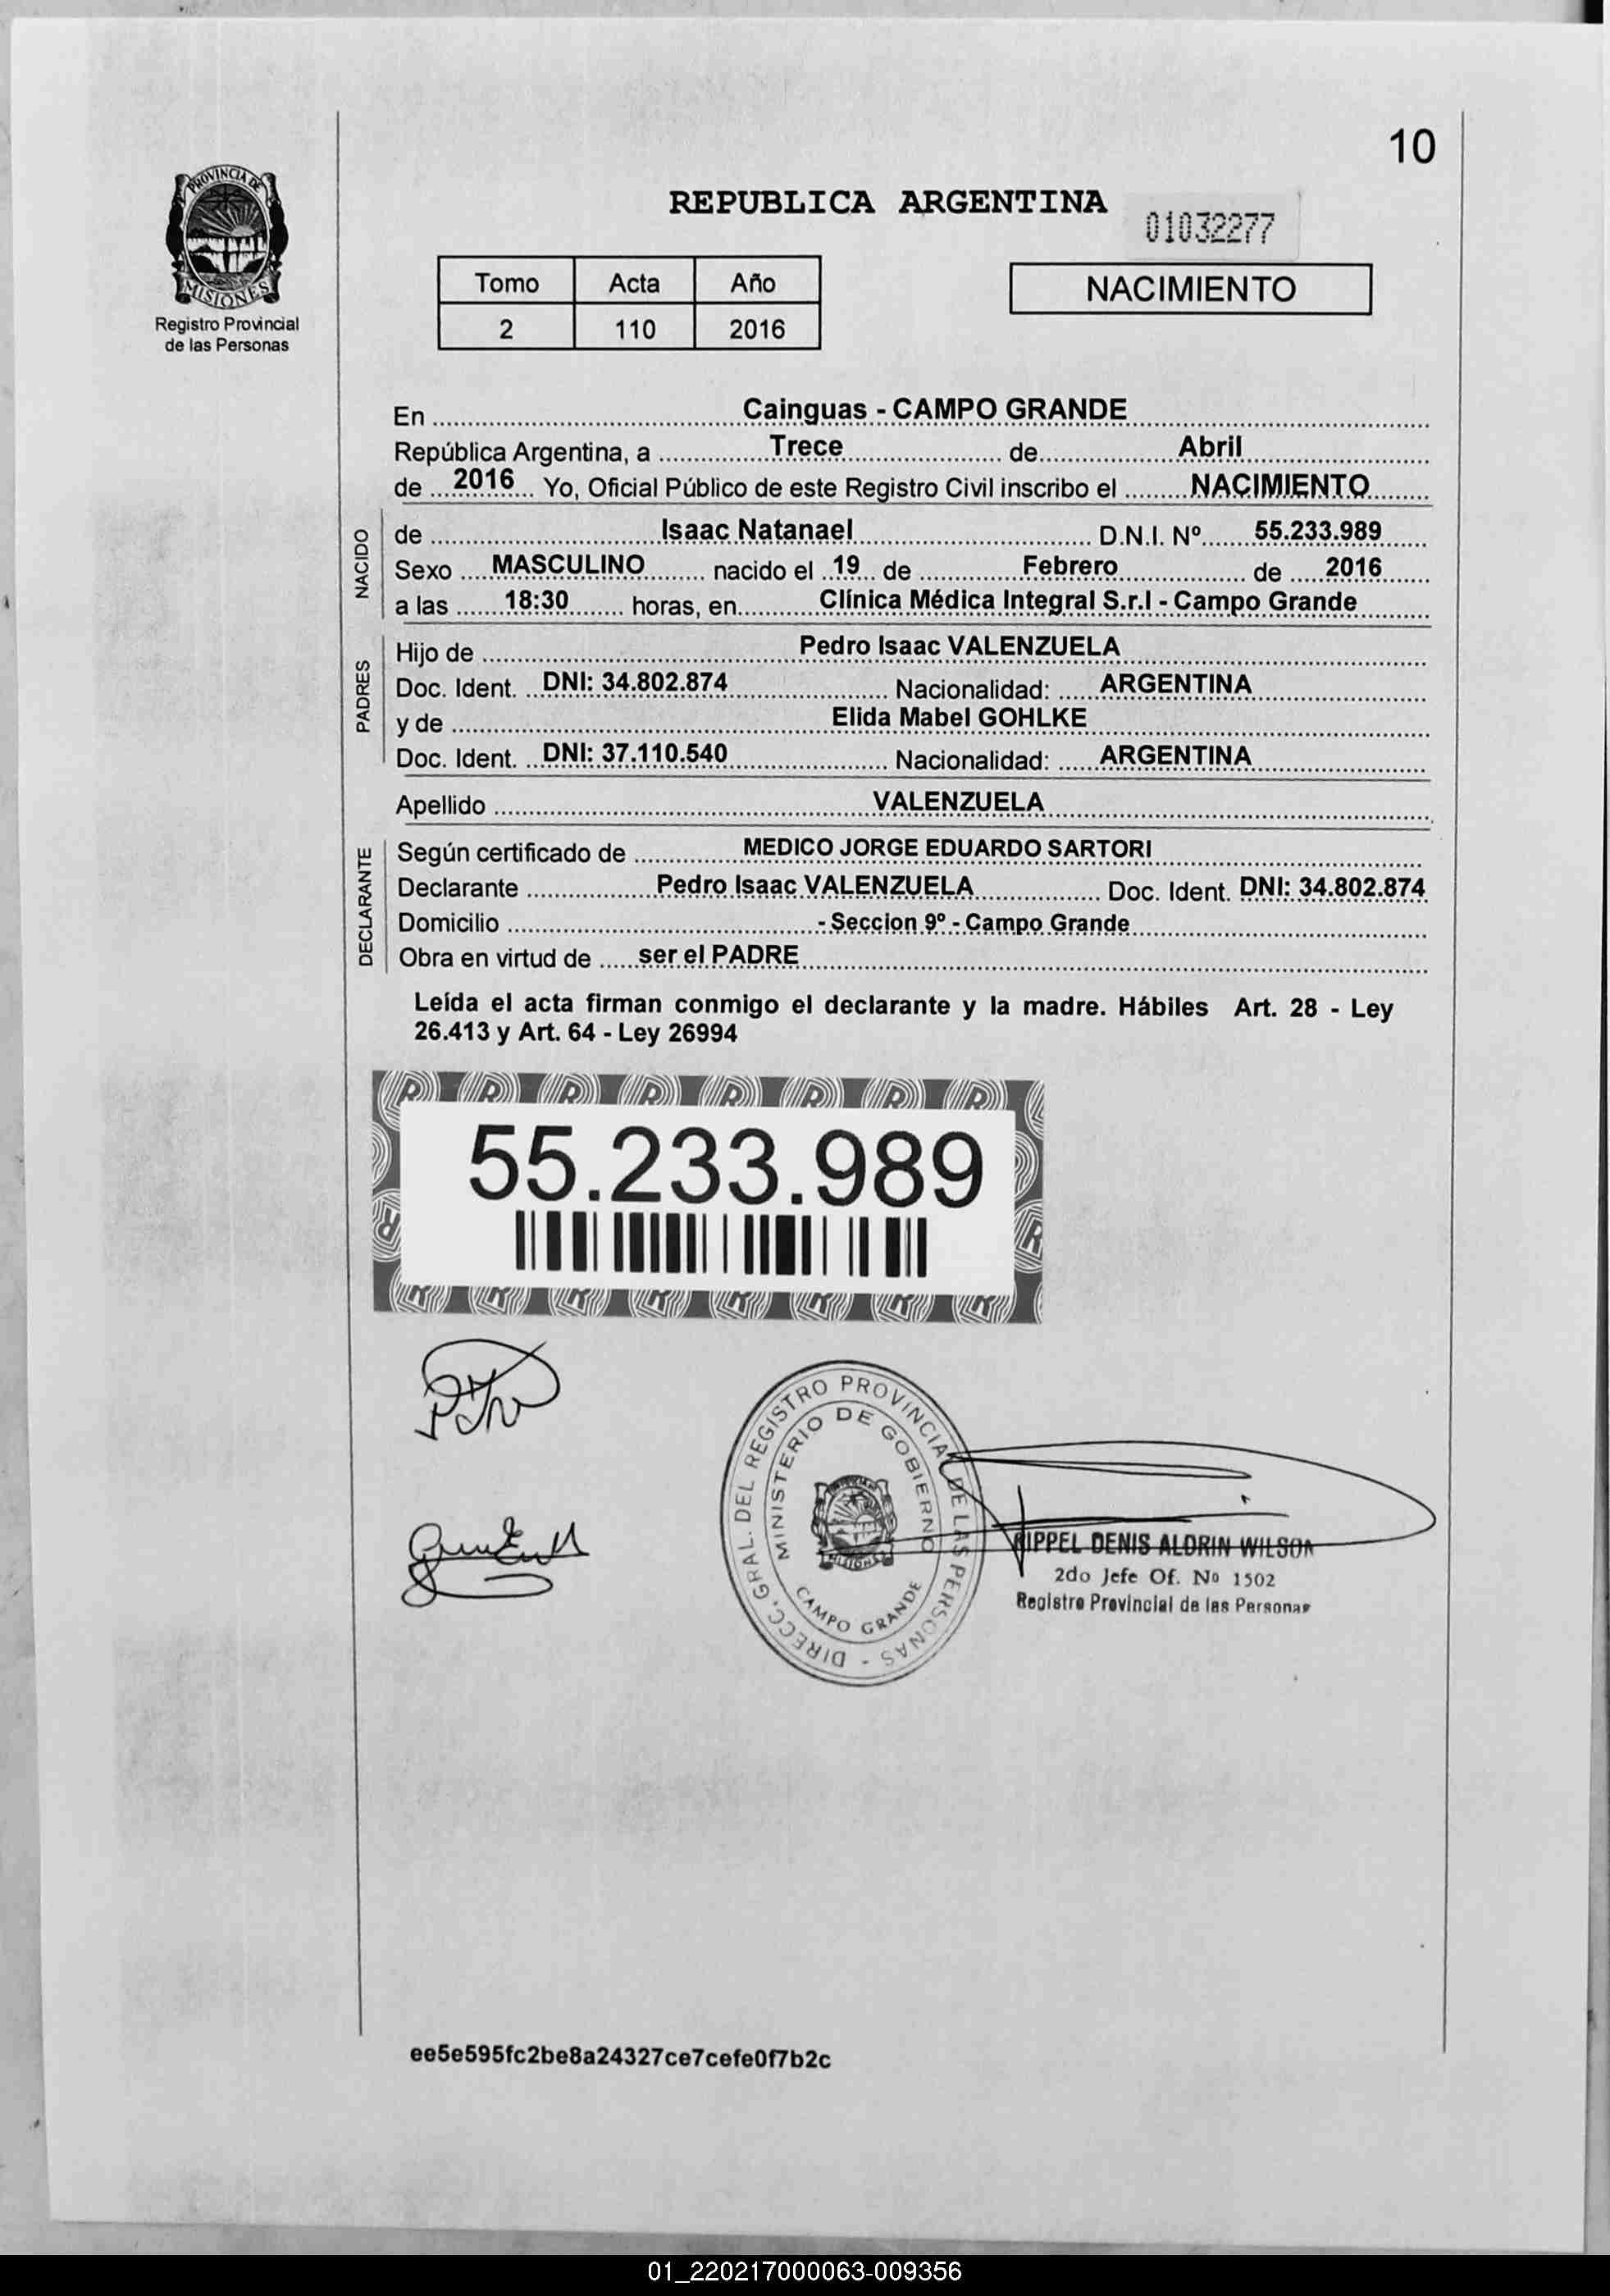 10
PROVINCIA DE
MISIONES
Registro Provincial
de las Personas
REPUBLICA ARGENTINA
01032277
Tomo Acta Año
2 110 2016
NACIMIENTO
En Cainguas - CAMPO GRANDE
República Argentina, a Trece de Abril
de 2016 Yo, Oficial Público de este Registro Civil inscribo el NACIMIENTO
NACIDO
de Isaac Natanael D.N.I. Nº 55.233.989
Sexo MASCULINO nacido el 19 de Febrero de 2016
a las 18:30 horas, en Clínica Médica Integral S.r.l - Campo Grande
PADRES
Hijo de Pedro Isaac VALENZUELA
Doc. Ident. DNI: 34.802.874 Nacionalidad: ARGENTINA
y de Elida Mabel GOHLKE
Doc. Ident. DNI: 37.110.540 Nacionalidad: ARGENTINA
Apellido VALENZUELA
DECLARANTE
Según certificado de MEDICO JORGE EDUARDO SARTORI
Declarante Pedro Isaac VALENZUELA Doc. Ident. DNI: 34.802.874
Domicilio - Seccion 9º - Campo Grande
Obra en virtud de ser el PADRE
Leída el acta firman conmigo el declarante y la madre. Hábiles Art. 28 - Ley
26.413 y Art. 64 - Ley 26994
55.233.989
DIRECC. GRAL. DEL REGISTRO PROVINCIAL DE LAS PERSONAS -
MINISTERIO DE GOBIERNO
CAMPO GRANDE
DENIS ALDRIN WILSON
2do Jefe Of. Nº 1502
Registro Provincial de las Personas
ee5e595fc2be8a24327ce7cefe0f7b2c
01_220217000063-009356